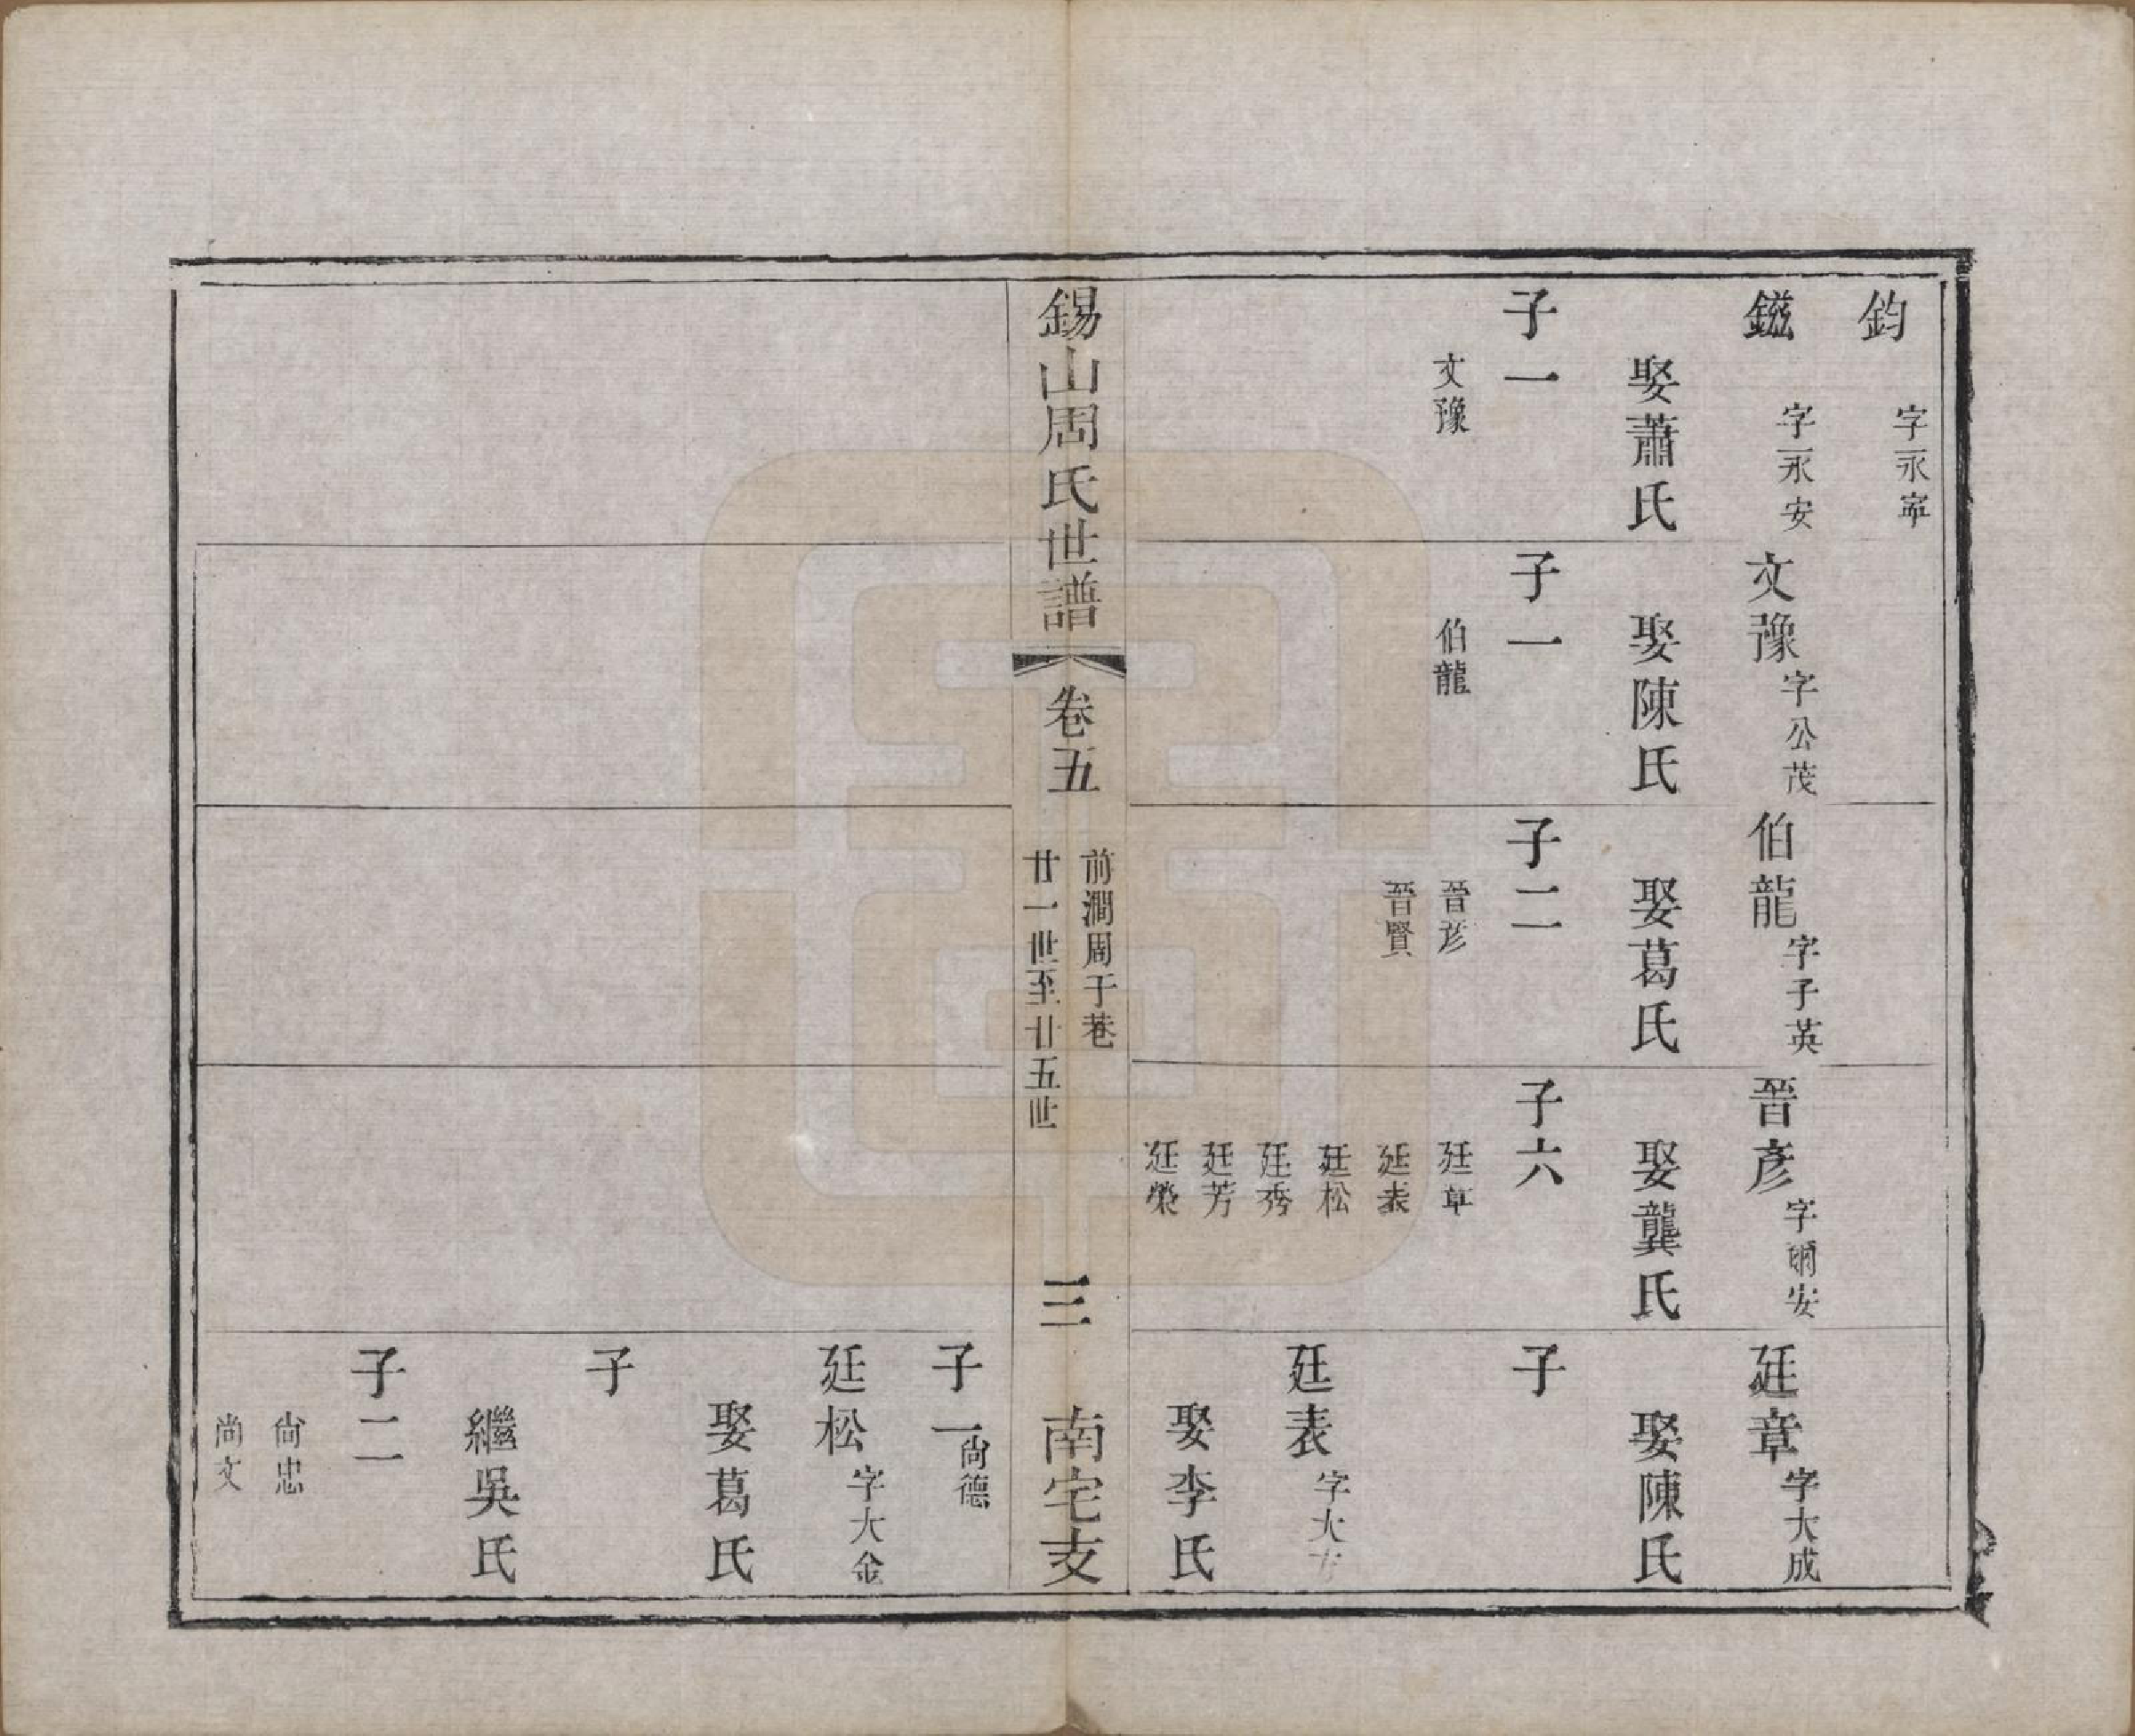 鈞
字永寧
鎡
字永安
娶蕭氏
子一
文豫
文豫
字公茂
娶陳氏
子一
伯龍
伯龍
字子英
娶葛氏
子二
晉彥
晉賢
晉彥
字爾安
娶龔氏
子六
廷章
廷表
廷松
廷秀
廷芳
廷榮
廷章
字大成
娶陳氏
子
廷表
字大
娶李氏
錫山周氏世譜
卷五
前澗周于巷
廿一世至廿五世
三
南宅支
子一
尙德
廷松
字大金
娶葛氏
子
繼吳氏
子二
尙忠
尙文